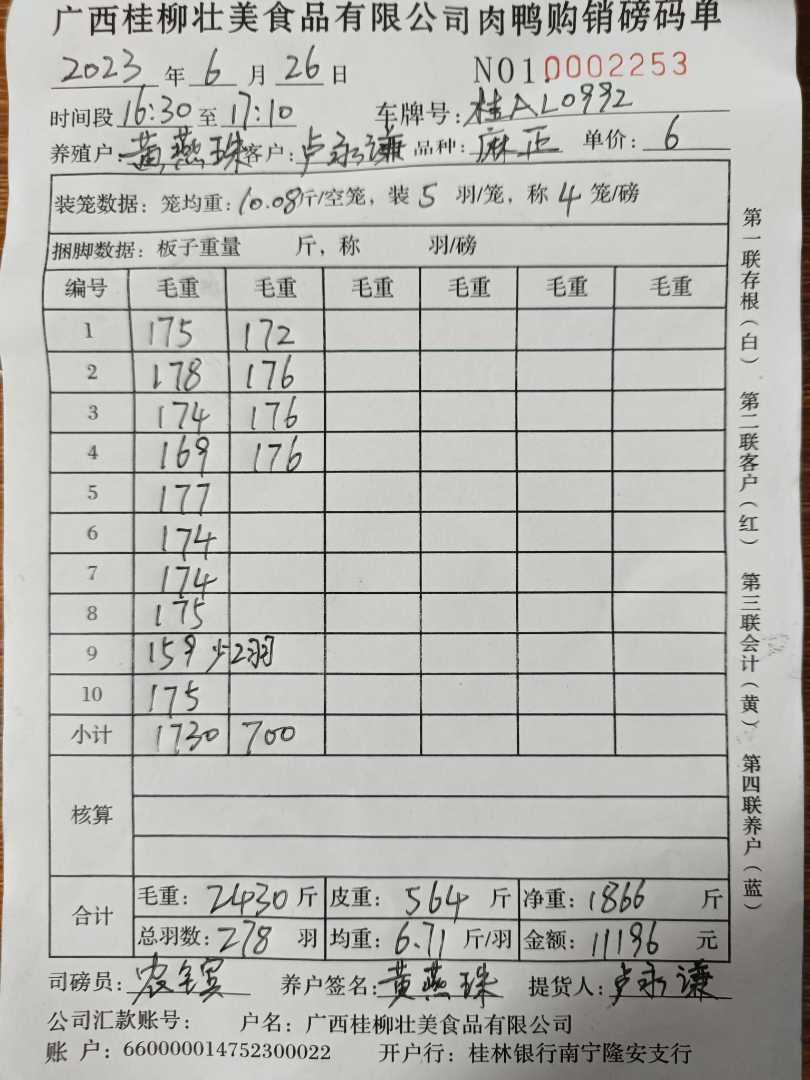 广西桂柳壮美食品有限公司肉鸭购销磅码单
2023 年 6 月 26 日 NO1 0002253
时间段 16:30 至 17:10 车牌号: 桂AL0992
养殖户: 黄燕珠 客户: 卢永谦 品种: 麻正 单价: 6
装笼数据: 笼均重: 10.08斤/空笼, 装 5 羽/笼, 称 4 笼/磅
捆脚数据: 板子重量 斤, 称 羽/磅
编号 毛重 毛重 毛重 毛重 毛重 毛重
1 175 172
2 178 176
3 174 176
4 169 176
5 177
6 174
7 174
8 175
9 159 少2羽
10 175
小计 1730 700
核算
合计 毛重: 2430 斤 皮重: 564 斤 净重: 1866 斤
总羽数: 278 羽 均重: 6.71 斤/羽 金额: 11196 元
司磅员: 农 养户签名: 黄燕珠 提货人: 卢永谦
公司汇款账号: 户名: 广西桂柳壮美食品有限公司
账 户: 660000014752300022 开户行: 桂林银行南宁隆安支行
第一联存根(白) 第二联客户(红) 第三联会计(黄) 第四联养户(蓝)